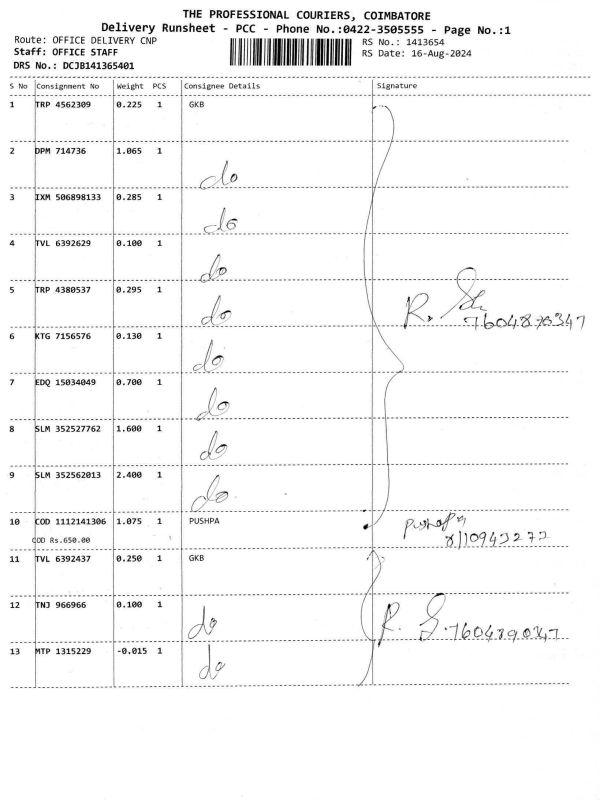 THE PROFESSIONAL COURIERS, COIMBATORE
Delivery Runsheet - PCC - Phone No.:0422-3505555 - Page No.:1
Route: OFFICE DELIVERY CNP
RS No.: 1413654
Staff: OFFICE STAFF
RS Date: 16-Aug-2024
DRS No.: DCJB141365401
S No Consignment No Weight PCS Consignee Details Signature
1 TRP 4562309 0.225 1 GKB
2 DPM 714736 1.065 1 do
3 IXM 506898133 0.285 1 do
4 TVL 6392629 0.100 1 do
5 TRP 4380537 0.295 1 do
R.
7604890347
6 KTG 7156576 0.130 1 do
7 EDQ 15034049 0.700 1 do
8 SLM 352527762 1.600 1 do
9 SLM 352562013 2.400 1 do
10 COD 1112141306 1.075 1 PUSHPA Pushpa
COD Rs.650.00
11 TVL 6392437 0.250 1 GKB
12 TNJ 966966 0.100 1 do R. S. 7604890347
13 MTP 1315229 -0.015 1 do